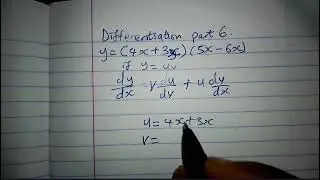 Differentiation part 6.
y=(4x+3x)(5x-6x)
if y=uv
dy/dx = v du/dv + u dy/dx
u=4x+3x
v=